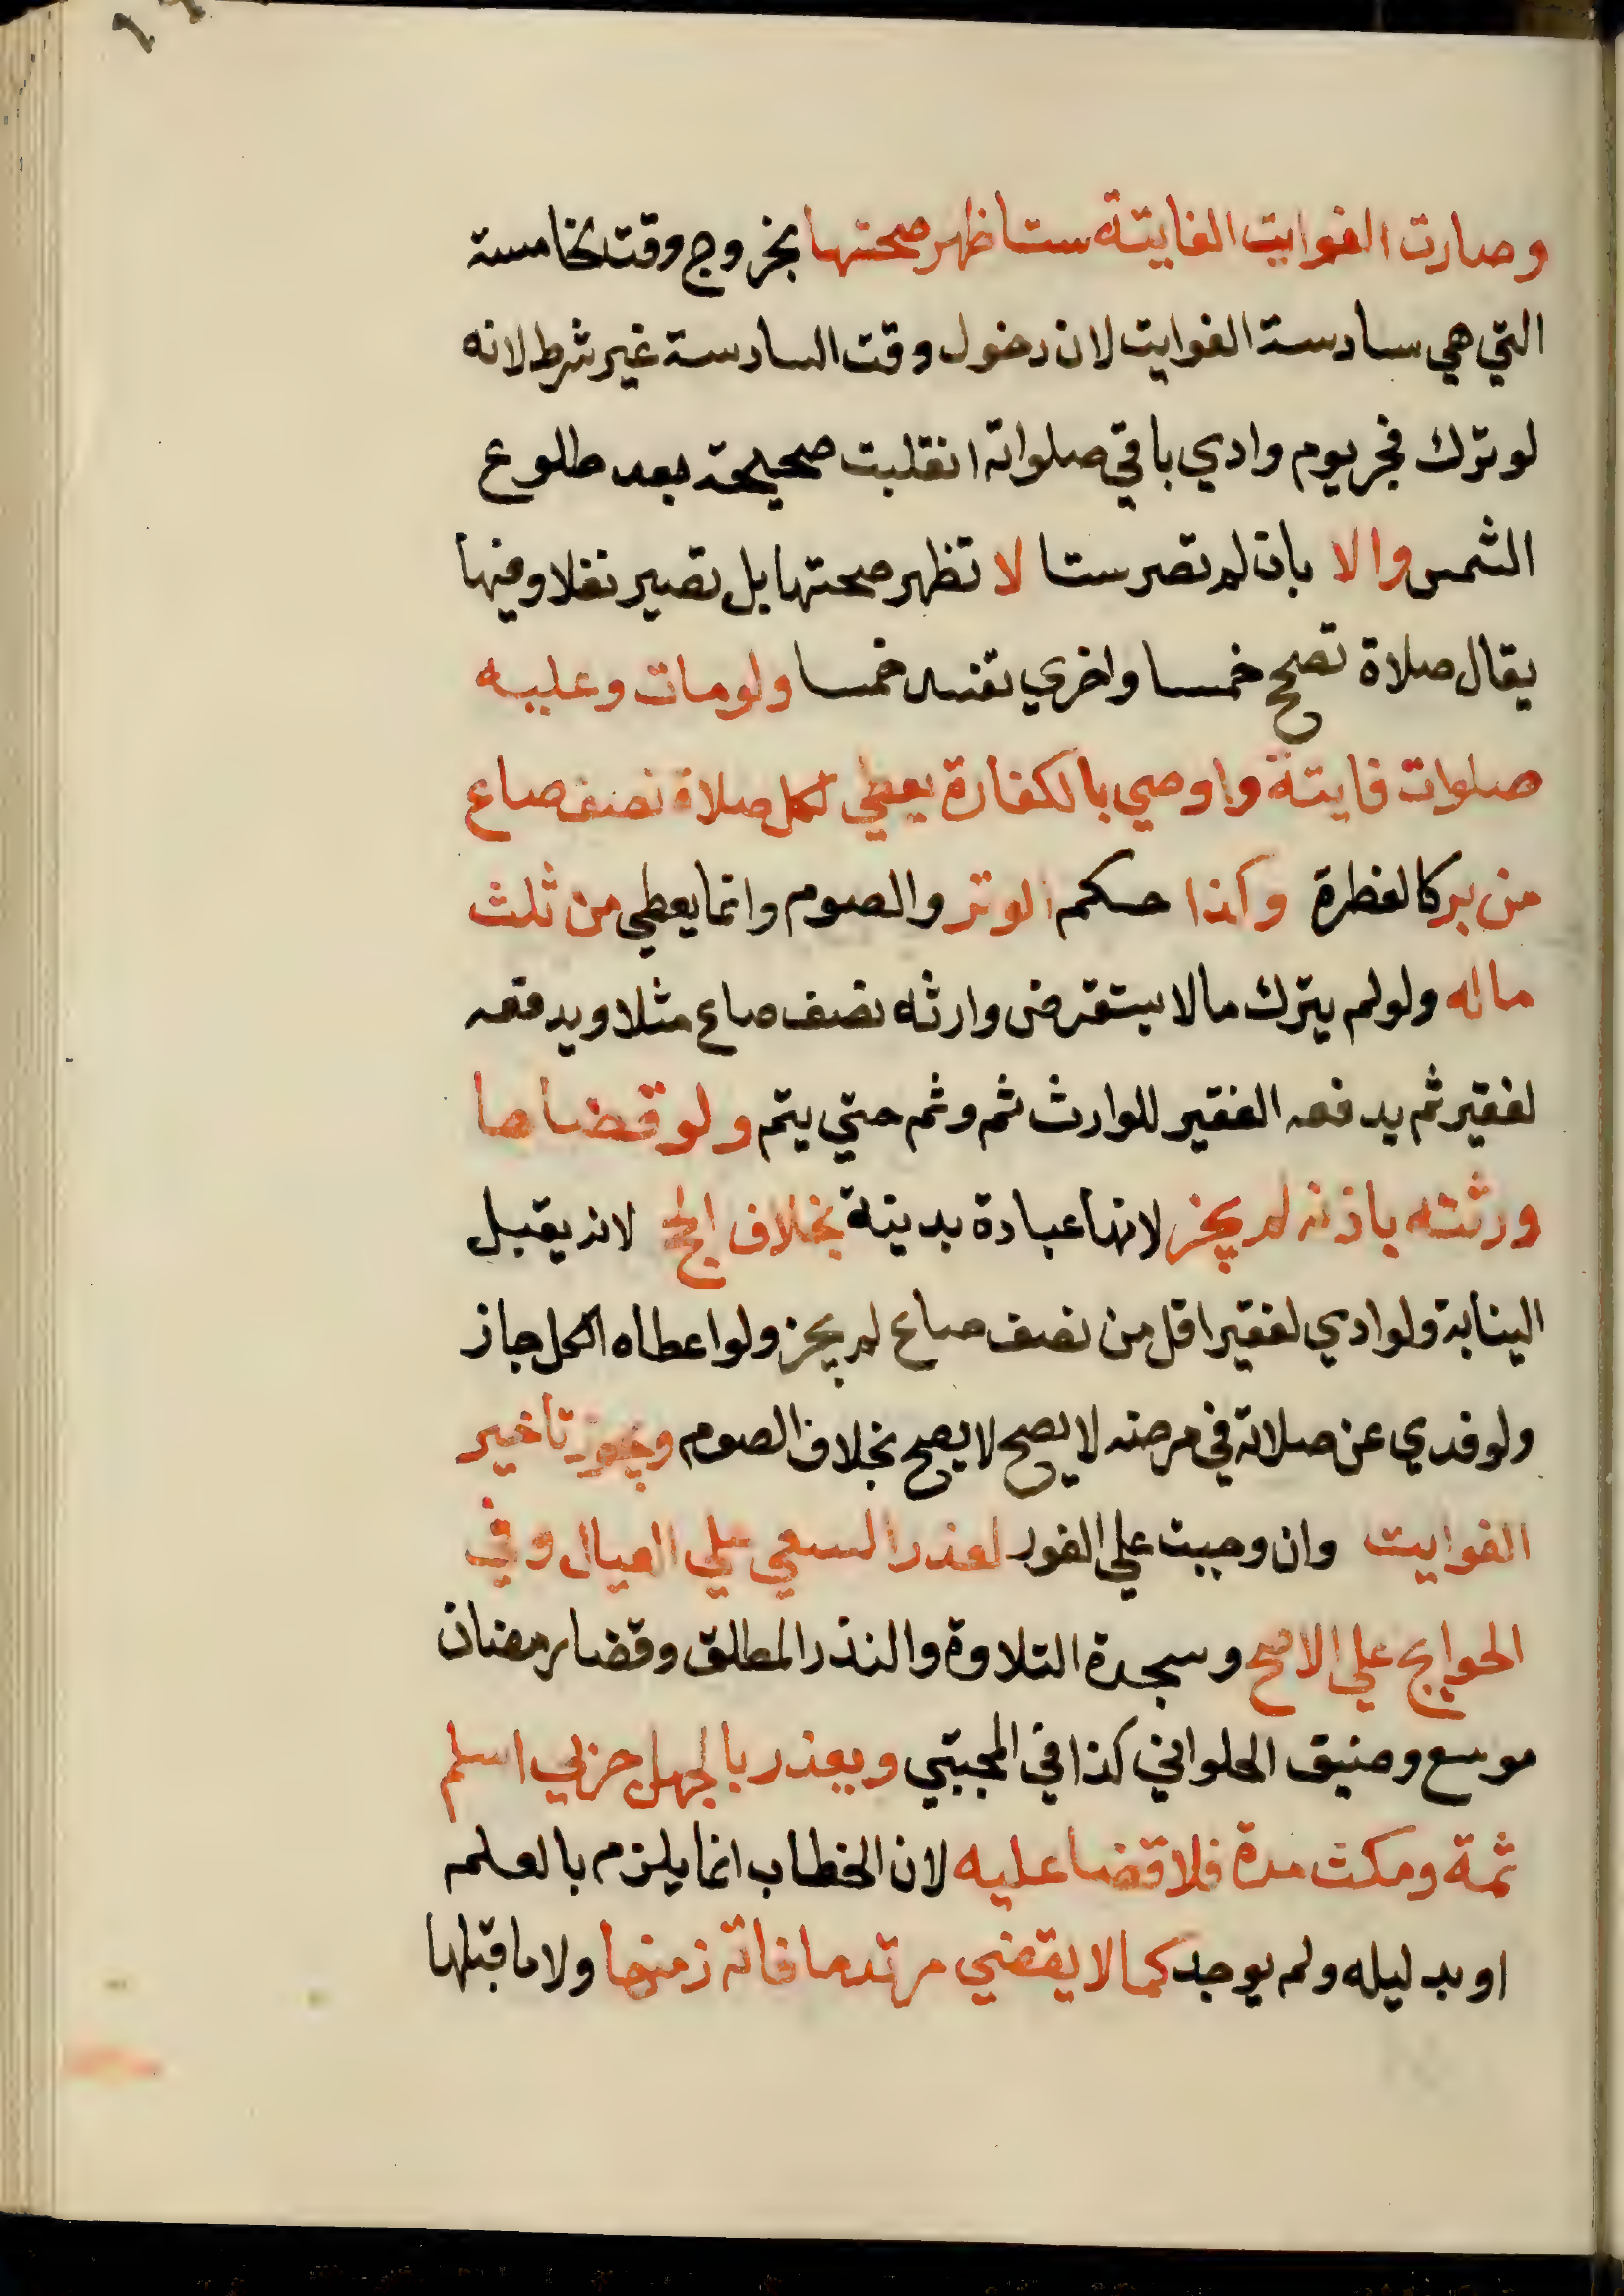 وصارت الفوايت الفايتة ستا ظهر صحتها بخروج وقت الخامسة
التي هي سادسة الفوايت لان دخول وقت السادسة غير شرط لانه
لو ترك فجر يوم وادي باقي صلواته انقلبت صحيحة بعد طلوع
الشمس والا بان لم تصر ستا لا تظهر صحتها بل تصير نفلا وفيها
يقال صلاة تصح خمسا واخري تفسد خمسا ولو مات وعليه
صلوات فايتة واوصي بالكفارة يعطي لكل صلاة نصف صاع
من بر كالفطرة وكذا حكم الوتر والصوم وانما يعطي من ثلث
ماله ولو لم يترك مالا يستقرض وارثه نصف صاع مثلا ويدفعه
لفقير ثم يدفعه الفقير للوارث ثم وثم حتي يتم ولو قضاها
ورثته باذنه لم يجز لانها عبادة بدينة بخلاف الحج لانه يقبل
الينابة ولو ادي لفقير اقل من نصف صاع لم يجز ولو اعطاه الكل جاز
ولو فدي عن صلاته في مرضه لا يصح لا يصح بخلاف الصوم ويجوز تاخير
الفوايت وان وجبت علي الفور لعذر السعي علي العيال وفي
الحوايج علي الاصح وسجدة التلاوة والنذر المطلق وقضا رمضان
موسع وضيق الحلواني كذا في المجتبي ويعذر بالجهل حربي اسلم
ثمة ومكث مدة فلا قضا عليه لان الخطاب انما يلزم بالعلم
او بدليله ولم يوجد كما لا يقضي مرتد ما فاته زمنها ولا ما قبلها